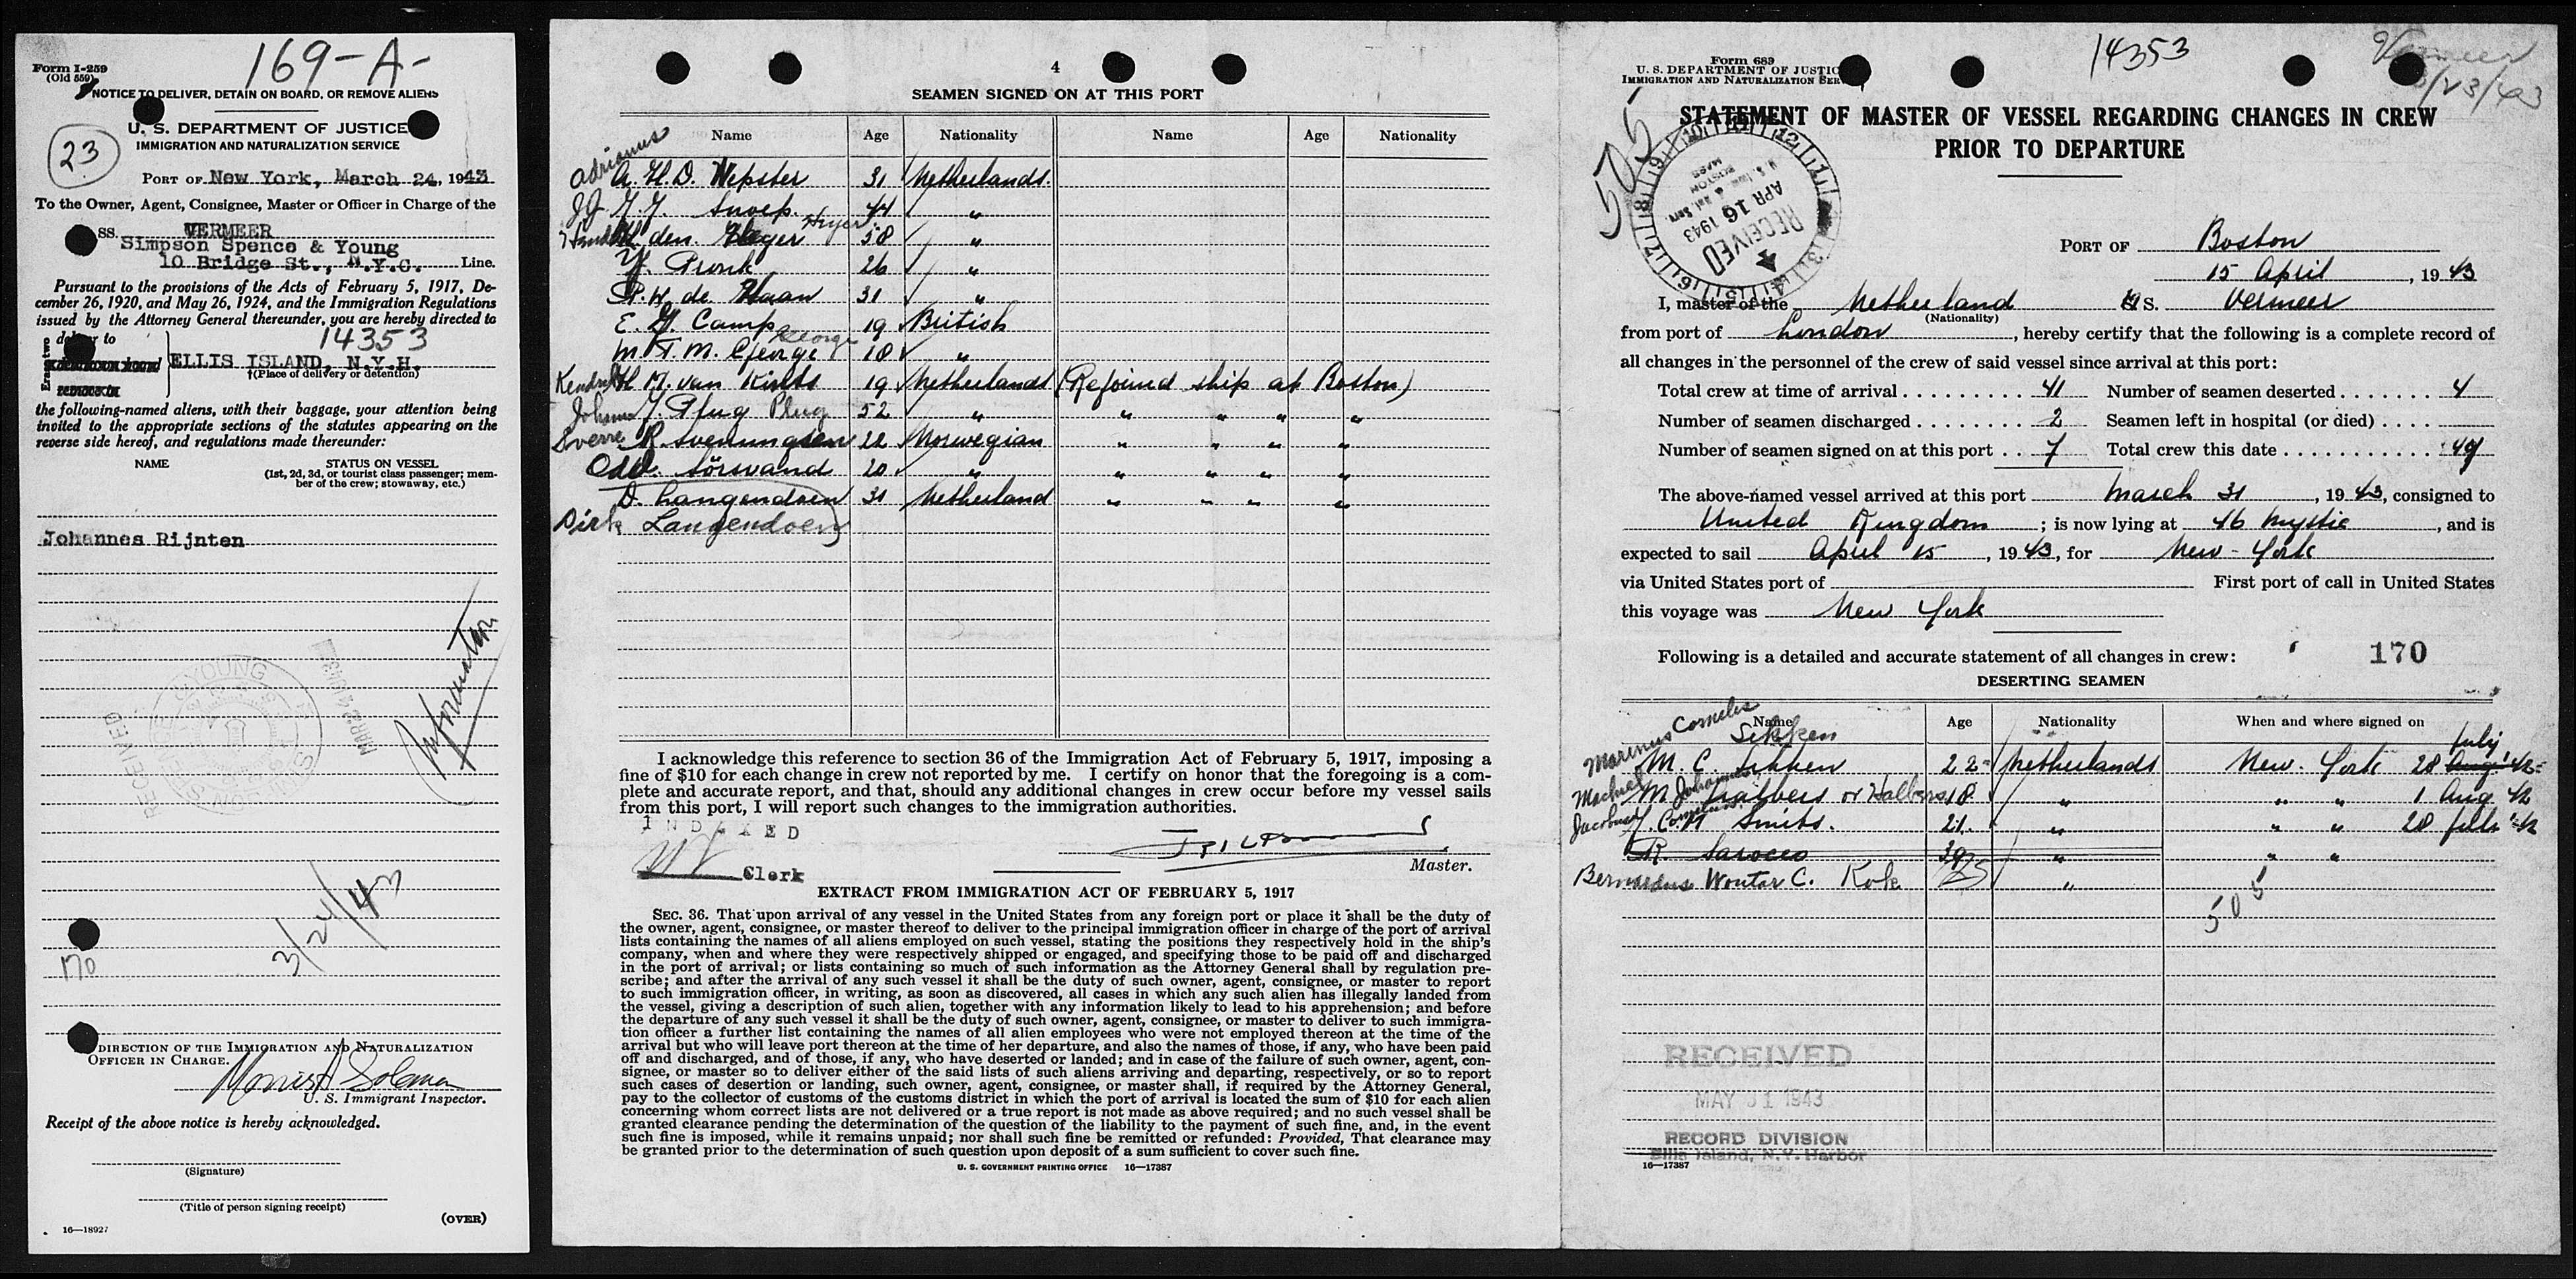 169-A-
Form I-259
(Old 559)
NOTICE TO DELIVER, DETAIN ON BOARD, OR REMOVE ALIENS
23
U. S. DEPARTMENT OF JUSTICE
IMMIGRATION AND NATURALIZATION SERVICE
PORT OF New York, March 24, 1943
To the Owner, Agent, Consignee, Master or Officer in Charge of the
SS. VERMEER
Simpson Spence & Young
10 Bridge St., N.Y.C. Line.
Pursuant to the provisions of the Acts of February 5, 1917, De-
cember 26, 1920, and May 26, 1924, and the Immigration Regulations
issued by the Attorney General thereunder, you are hereby directed to
14353
to
ELLIS ISLAND, N.Y.H.
†(Place of delivery or detention)
the following-named aliens, with their baggage, your attention being
invited to the appropriate sections of the statutes appearing on the
reverse side hereof, and regulations made thereunder:
NAME STATUS ON VESSEL
(1st, 2d, 3d, or tourist class passenger; mem-
ber of the crew; stowaway, etc.)
Johannes Rijnten
RECEIVED
3/24/43
170
DIRECTION OF THE IMMIGRATION AND NATURALIZATION
OFFICER IN CHARGE.
Morris Soloman
U. S. Immigrant Inspector.
Receipt of the above notice is hereby acknowledged.
(Signature)
(Title of person signing receipt)
(OVER)
16—18927
4
SEAMEN SIGNED ON AT THIS PORT
Name Age Nationality Name Age Nationality
Adrianus
A. H. D. Wepster 31 Netherlands
Snoep 44 "
den Heyer 58 "
Pronk 26 "
P. W. de Haan 31 "
E. G. Camp 19 British
M. T. M. George 18 "
H. M. van Kints 19 Netherlands (Rejoined ship at Boston)
Johann J. Plug Plug 52 " " " " "
Sverre R. Svenungsen 22 Norwegian " " "
Odd. Sörsvand 20 " " " " "
D. Langendoen 31 Netherland " " " "
Dirk Langendoen
I acknowledge this reference to section 36 of the Immigration Act of February 5, 1917, imposing a
fine of $10 for each change in crew not reported by me. I certify on honor that the foregoing is a com-
plete and accurate report, and that, should any additional changes in crew occur before my vessel sails
from this port, I will report such changes to the immigration authorities.
INDEXED
Clerk
Master.
EXTRACT FROM IMMIGRATION ACT OF FEBRUARY 5, 1917
SEC. 36. That upon arrival of any vessel in the United States from any foreign port or place it shall be the duty of
the owner, agent, consignee, or master thereof to deliver to the principal immigration officer in charge of the port of arrival
lists containing the names of all aliens employed on such vessel, stating the positions they respectively hold in the ship's
company, when and where they were respectively shipped or engaged, and specifying those to be paid off and discharged
in the port of arrival; or lists containing so much of such information as the Attorney General shall by regulation pre-
scribe; and after the arrival of any such vessel it shall be the duty of such owner, agent, consignee, or master to report
to such immigration officer, in writing, as soon as discovered, all cases in which any such alien has illegally landed from
the vessel, giving a description of such alien, together with any information likely to lead to his apprehension; and before
the departure of any such vessel it shall be the duty of such owner, agent, consignee, or master to deliver to such immigra-
tion officer a further list containing the names of all alien employees who were not employed thereon at the time of the
arrival but who will leave port thereon at the time of her departure, and also the names of those, if any, who have been paid
off and discharged, and of those, if any, who have deserted or landed; and in case of the failure of such owner, agent, con-
signee, or master so to deliver either of the said lists of such aliens arriving and departing, respectively, or so to report
such cases of desertion or landing, such owner, agent, consignee, or master shall, if required by the Attorney General,
pay to the collector of customs of the customs district in which the port of arrival is located the sum of $10 for each alien
concerning whom correct lists are not delivered or a true report is not made as above required; and no such vessel shall be
granted clearance pending the determination of the question of the liability to the payment of such fine, and, in the event
such fine is imposed, while it remains unpaid; nor shall such fine be remitted or refunded: Provided, That clearance may
be granted prior to the determination of such question upon deposit of a sum sufficient to cover such fine.
U. S. GOVERNMENT PRINTING OFFICE 16—17387
Form 689
U. S. DEPARTMENT OF JUSTIC
IMMIGRATION AND NATURALIZATION SER
14353
Vermeer
STATEMENT OF MASTER OF VESSEL REGARDING CHANGES IN CREW
PRIOR TO DEPARTURE
505
RECEIVED
APR 16 1943
PORT OF Boston
15 April, 1943
I, master of the Netherland S. Vermeer
(Nationality)
from port of London, hereby certify that the following is a complete record of
all changes in the personnel of the crew of said vessel since arrival at this port:
Total crew at time of arrival 41 Number of seamen deserted 4
Number of seamen discharged 2 Seamen left in hospital (or died)
Number of seamen signed on at this port 7 Total crew this date 49
The above-named vessel arrived at this port March 31, 1943, consigned to
United Kingdom; is now lying at 46 Mystic, and is
expected to sail April 15, 1943, for New-York
via United States port of First port of call in United States
this voyage was New York
Following is a detailed and accurate statement of all changes in crew: 170
DESERTING SEAMEN
Name Age Nationality When and where signed on
Marinus Cornelis Sikken
M. C. Sikken 22 Netherlands New. York 28 July '42
M Johannes or Halbers 18 " " " 1 Aug 42
Smits. 21. " " " 28
R. Saroceo 39 " " "
Bernardus Wouter C. Kok 25 "
505
RECEIVED
MAY 31 1943
RECORD DIVISION
Ellis Island, N.Y. Harbor
16—17387